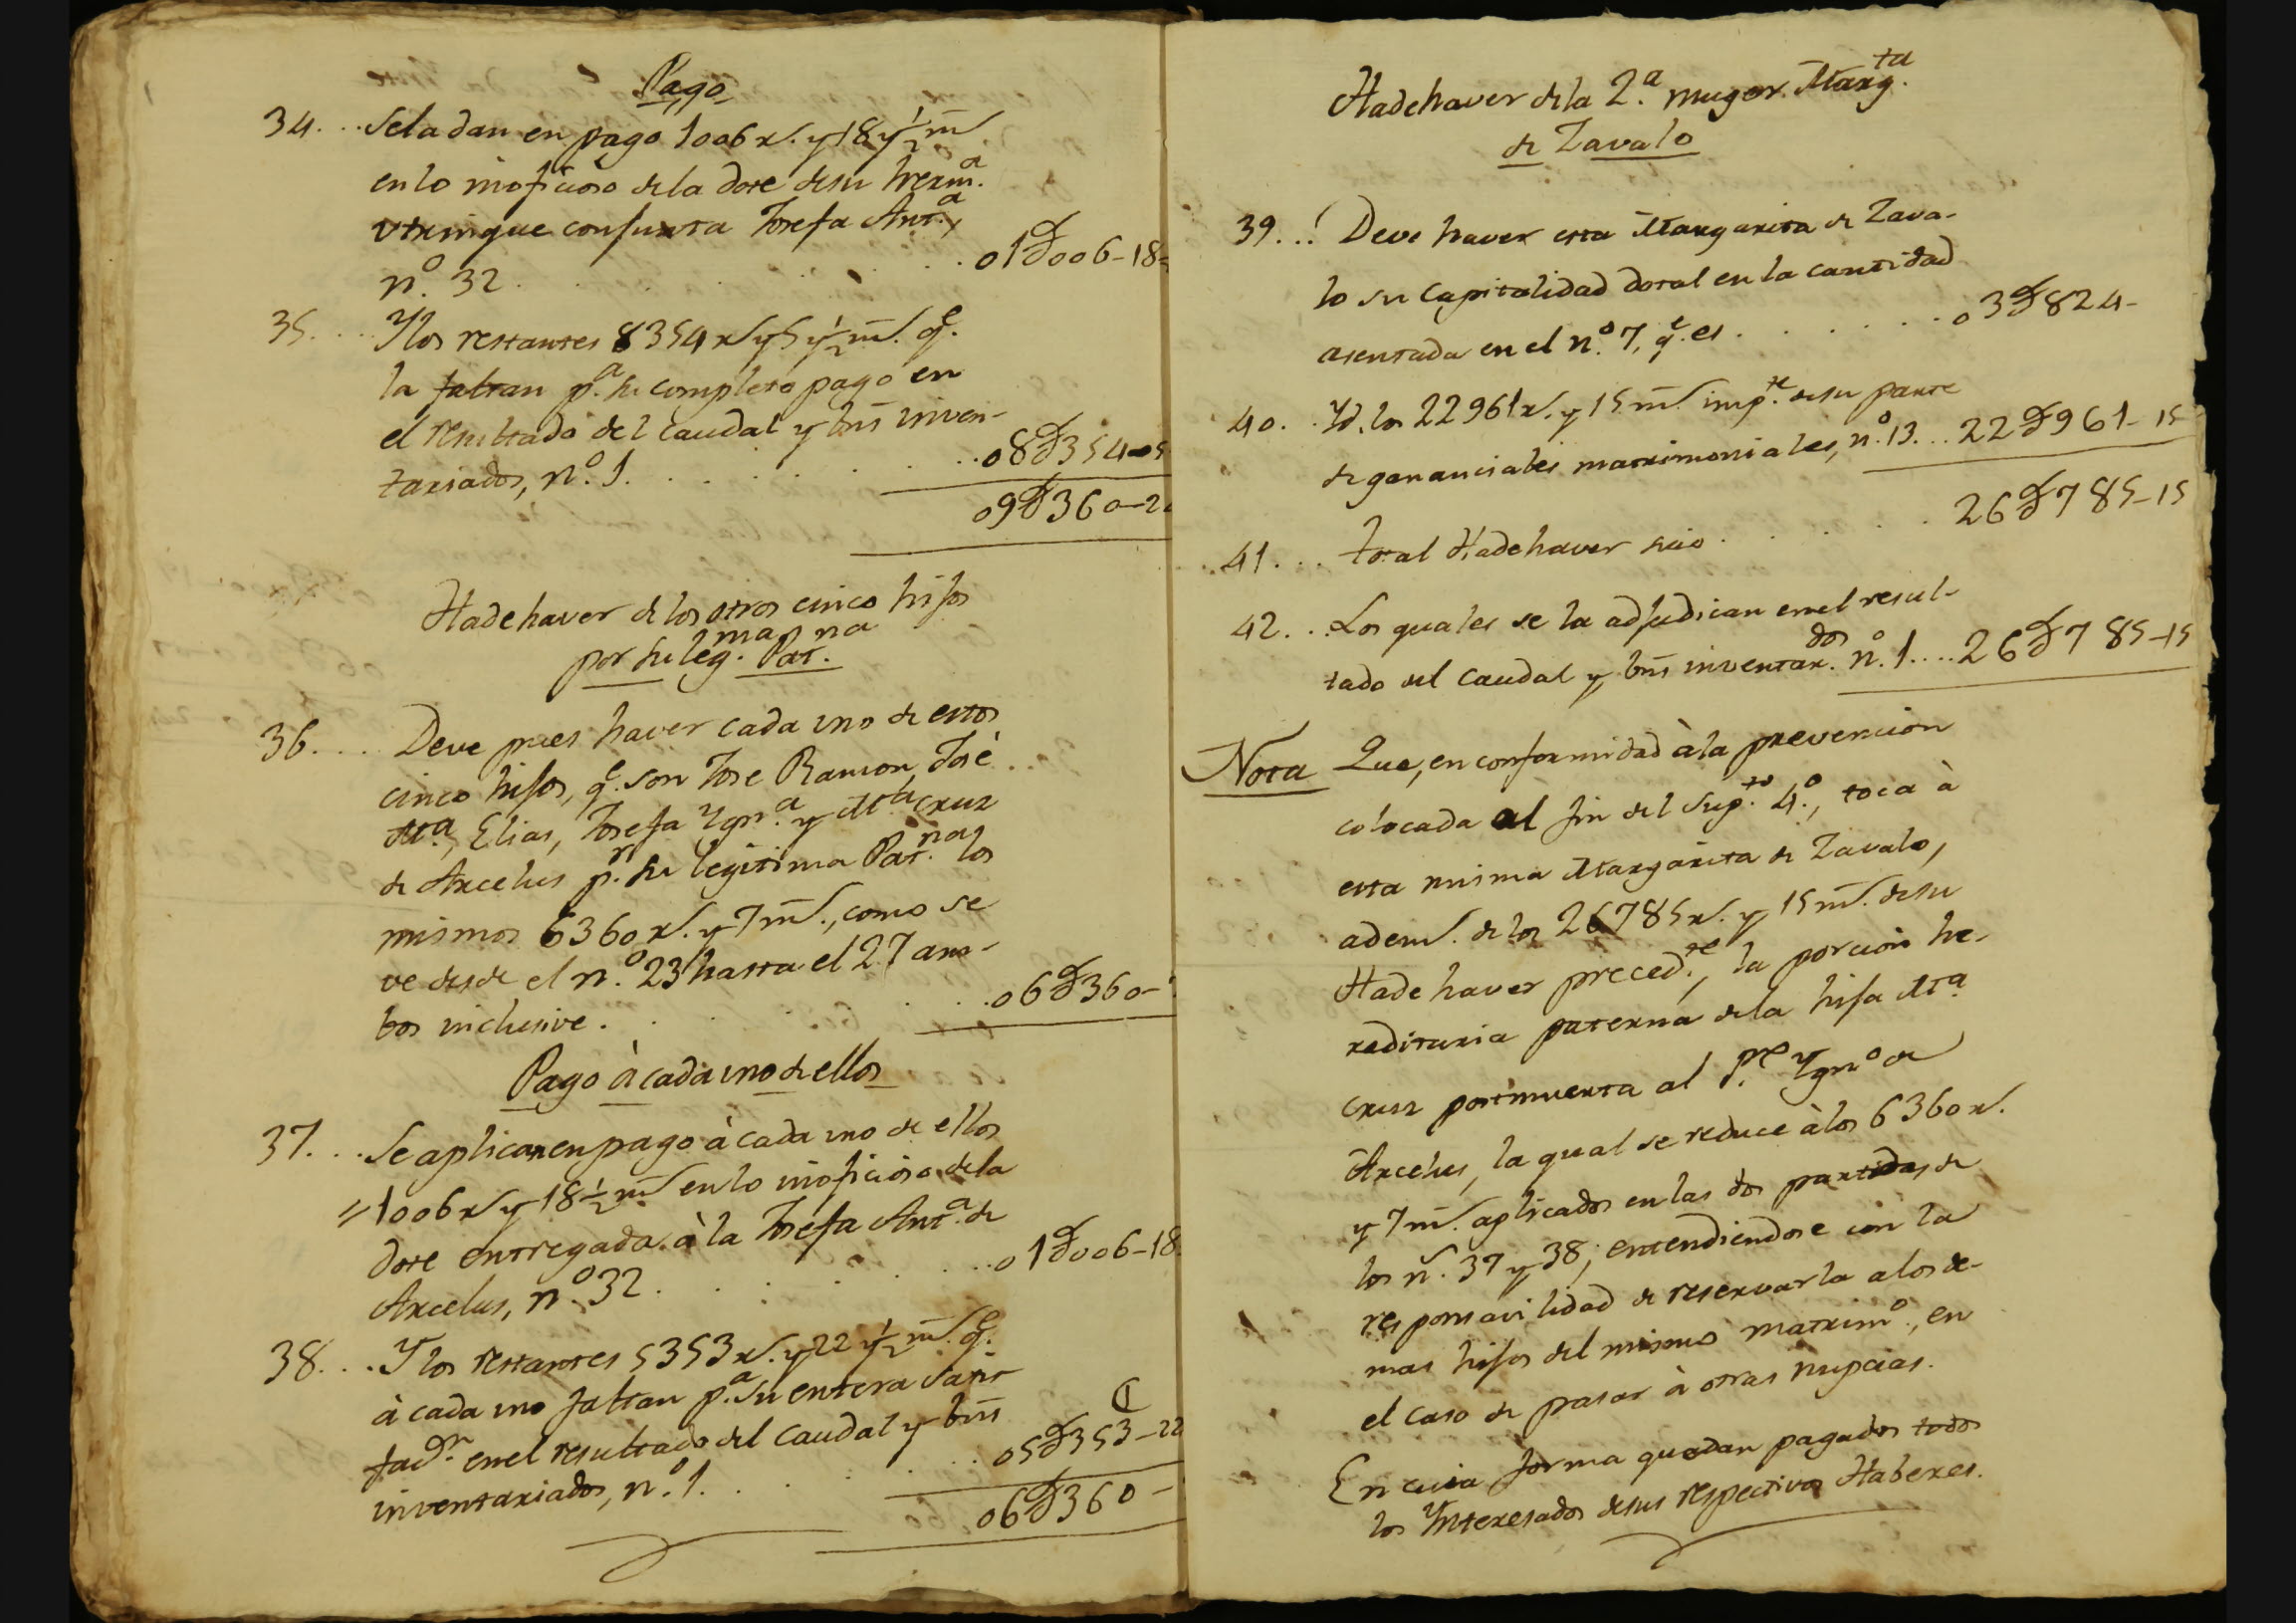 Pago
34... Sela dan en pago 1006 rs. y 18 y ½ ms
en lo inoficioso de la dote de su herm.a
utrinque conjunta Josefa Ant.a,
n.o 32. . . . . . 01U006-18
35... Y los restantes 8354 rs y 5 y ½ ms. q.e
la faltan p.a su completo pago en
el resultado del caudal y bns inven-
tariados, n.o 1. . . . . . 08U354-05
09U360-2
Hadehaver de los otros cinco hijos
por su leg.ma Pat.na
36... Deve pues haver cada uno de estos
cinco hijos, q.e son Jose Ramon, José
M.a, Elias, Josefa Ygn.a y M.a Cruz
de Arcelus p.r su legitima Pat.na los
mismos 6360 rs. y 7 ms., como se
ve desde el n.o 23 hasta el 27 am-
bos inclusive. . . . . 06U360-
Pago à cada uno de ellos
37... Se aplican en pago à cada uno de ellos
= 1006 rs y 18 ½ ms en lo inoficioso de la
dote entregada à la Josefa Ant.a de
Arcelus, n.o 32. . . . . . 01U006-18
38... Y los restantes 5353 rs. y 22 y ½ ms. q.e
à cada uno faltan p.a su entera satis-
fac.n en el resultado del caudal y bns
inventariados, n.o 1. . . . . 05U353-22
06U360-
Hadehaver de la 2.a muger Marg.ta
de Zavalo
39... Deve haver esta Margarita de Zava-
lo su Capitalidad dotal en la cantidad
asentada en el n.o 7, q.e es . . . . . 03U824-
40. . Yd. los 22961 rs. y 15 ms. imp.te de su parte
de gananciales matrimoniales, n.o 13... 22U961-15
26U785-15
41... Total Hadehaver suio . . . . .
42... Los quales se la adjudican en el resul-
tado del caudal y bns inventar.dos n.o 1.... 26U785-15
Nota Que, en conformidad à la prevencion
colocada al fin del Sup.to 4.o, toca à
esta misma Margarita de Zavalo,
adems. de los 26785 rs. y 15 ms. de su
Hadehaver preced.te, la porcion he-
reditaria paterna de la hija M.a
Cruz postmuerta al P.e Ygn.o de
Arcelus, la qual se reduce à los 6360 rs.
y 7 ms. aplicados en las dos partidas de
los n.s 37 y 38; entendiendose con la
responsavilidad de reservarla a los de-
mas hijos del mismo matrim.o, en
el caso de pasar à otras nupcias.
En cuia forma quedan pagados todos
los Ynteresados de sus respectivos Haberes.